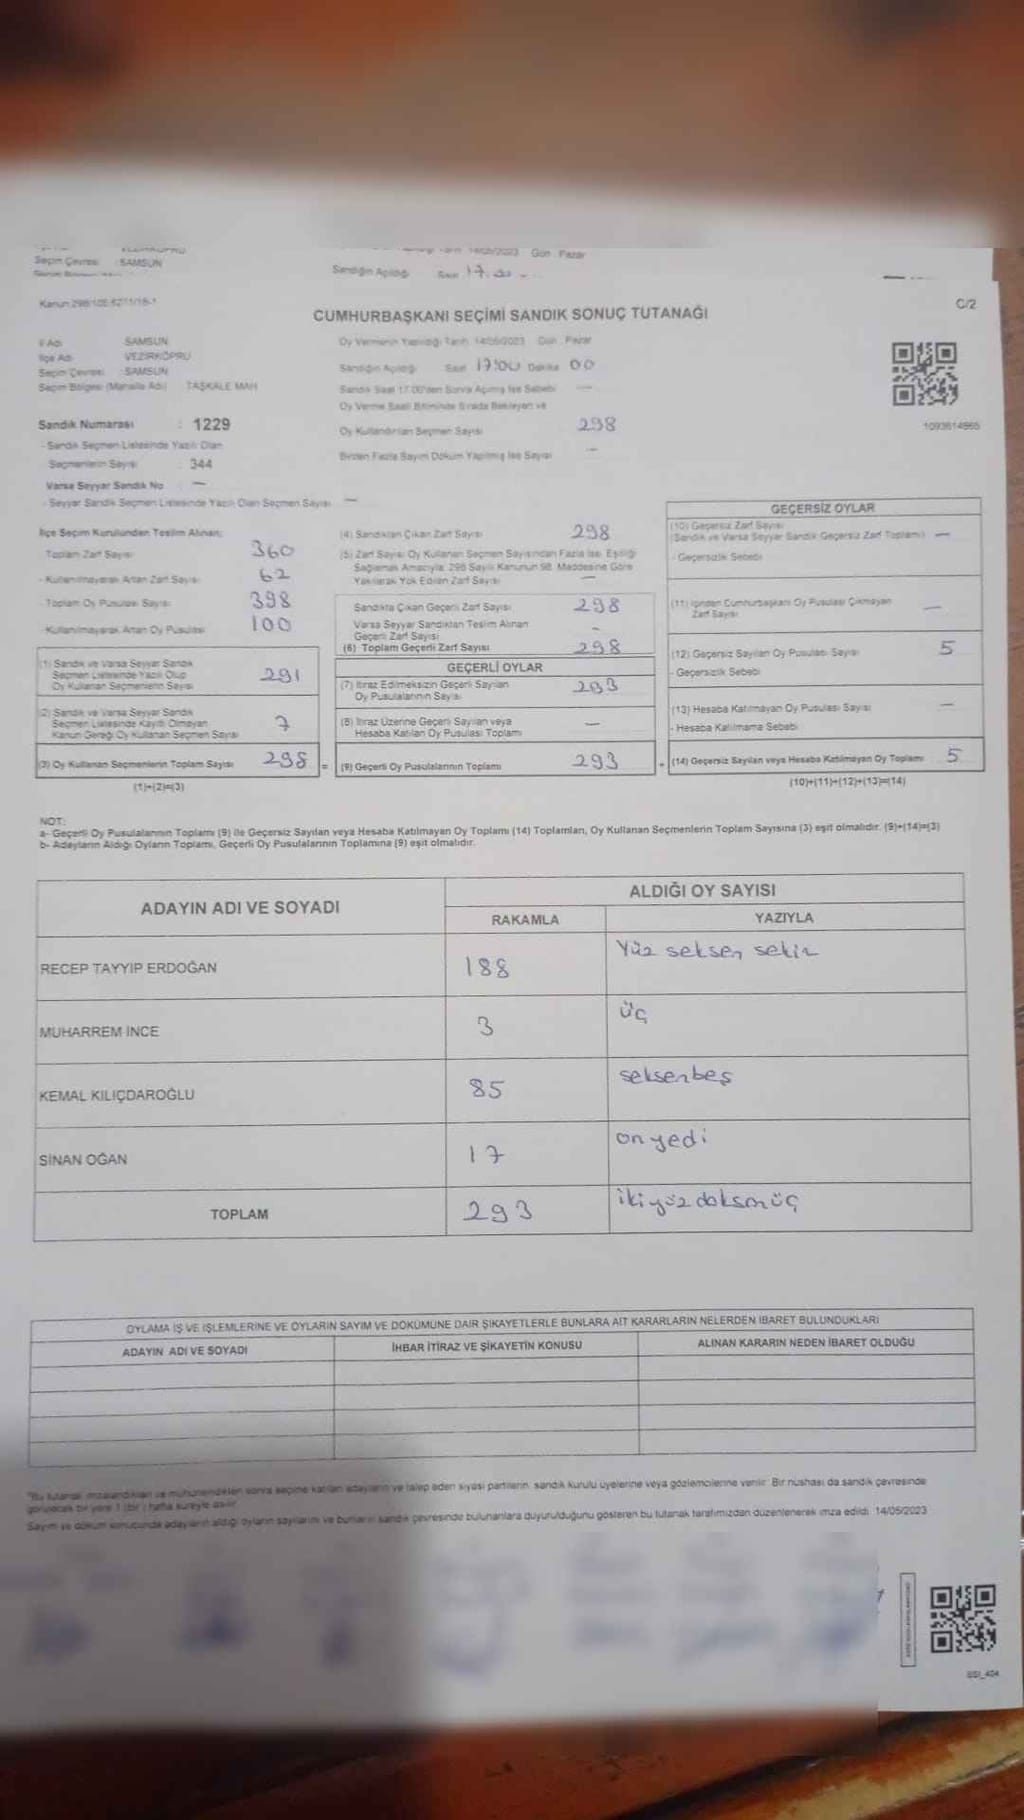 VEZİRKÖPRÜ
Seçim Çevresi : SAMSUN
14/05/2023 Gün : Pazar
Sandığın Açıldığı Saat 17.00
Kanun 298/105 6271/18-1
C/2
CUMHURBAŞKANI SEÇİMİ SANDIK SONUÇ TUTANAĞI
İl Adı : SAMSUN
İlçe Adı : VEZİRKÖPRÜ
Seçim Çevresi : SAMSUN
Seçim Bölgesi (Mahalle Adı) : TAŞKALE MAH
Sandık Numarası : 1229
- Sandık Seçmen Listesinde Yazılı Olan
Seçmenlerin Sayısı : 344
Varsa Seyyar Sandık No : —
- Seyyar Sandık Seçmen Listesinde Yazılı Olan Seçmen Sayısı —
Oy Vermenin Yapıldığı Tarih: 14/05/2023 Gün : Pazar
Sandığın Açıldığı Saat 17:00 Dakika 00
Sandık Saat 17.00'den Sonra Açılmış İse Sebebi —
Oy Verme Saati Bitiminde Sırada Bekleyen ve
Oy Kullandırılan Seçmen Sayısı 298
Birden Fazla Sayım Döküm Yapılmış İse Sayısı —
1093614865
İlçe Seçim Kurulundan Teslim Alınan;
- Toplam Zarf Sayısı 360
- Kullanılmayarak Artan Zarf Sayısı 62
- Toplam Oy Pusulası Sayısı 398
- Kullanılmayarak Artan Oy Pusulası 100
(1) Sandık ve Varsa Seyyar Sandık
Seçmen Listesinde Yazılı Olup
Oy Kullanan Seçmenlerin Sayısı 291
(2) Sandık ve Varsa Seyyar Sandık
Seçmen Listesinde Kayıtlı Olmayan
Kanun Gereği Oy Kullanan Seçmen Sayısı 7
(3) Oy Kullanan Seçmenlerin Toplam Sayısı 298
(1)+(2)=(3)
(4) Sandıktan Çıkan Zarf Sayısı 298
(5) Zarf Sayısı Oy Kullanan Seçmen Sayısından Fazla İse, Eşitliği
Sağlamak Amacıyla; 298 Sayılı Kanunun 98. Maddesine Göre
Yakılarak Yok Edilen Zarf Sayısı —
Sandıkta Çıkan Geçerli Zarf Sayısı 298
Varsa Seyyar Sandıktan Teslim Alınan
Geçerli Zarf Sayısı -
(6) Toplam Geçerli Zarf Sayısı 298
GEÇERLİ OYLAR
(7) İtiraz Edilmeksizin Geçerli Sayılan
Oy Pusulalarının Sayısı 293
(8) İtiraz Üzerine Geçerli Sayılan veya
Hesaba Katılan Oy Pusulası Toplamı —
= (9) Geçerli Oy Pusulalarının Toplamı 293
GEÇERSİZ OYLAR
(10) Geçersiz Zarf Sayısı
(Sandık ve Varsa Seyyar Sandık Geçersiz Zarf Toplamı) —
- Geçersizlik Sebebi
(11) İçinden Cumhurbaşkanı Oy Pusulası Çıkmayan
Zarf Sayısı —
(12) Geçersiz Sayılan Oy Pusulası Sayısı 5
- Geçersizlik Sebebi
(13) Hesaba Katılmayan Oy Pusulası Sayısı —
- Hesaba Katılmama Sebebi
+ (14) Geçersiz Sayılan veya Hesaba Katılmayan Oy Toplamı 5
(10)+(11)+(12)+(13)=(14)
NOT:
a- Geçerli Oy Pusulalarının Toplamı (9) ile Geçersiz Sayılan veya Hesaba Katılmayan Oy Toplamı (14) Toplamları, Oy Kullanan Seçmenlerin Toplam Sayısına (3) eşit olmalıdır. (9)+(14)=(3)
b- Adayların Aldığı Oyların Toplamı, Geçerli Oy Pusulalarının Toplamına (9) eşit olmalıdır.
ADAYIN ADI VE SOYADI
ALDIĞI OY SAYISI
RAKAMLA YAZIYLA
RECEP TAYYİP ERDOĞAN 188 Yüz seksen sekiz
MUHARREM İNCE 3 üç
KEMAL KILIÇDAROĞLU 85 seksenbeş
SİNAN OĞAN 17 onyedi
TOPLAM 293 ikiyüzdoksanüç
OYLAMA İŞ VE İŞLEMLERİNE VE OYLARIN SAYIM VE DÖKÜMÜNE DAİR ŞİKAYETLERLE BUNLARA AİT KARARLARIN NELERDEN İBARET BULUNDUKLARI
ADAYIN ADI VE SOYADI İHBAR İTİRAZ VE ŞİKAYETİN KONUSU ALINAN KARARIN NEDEN İBARET OLDUĞU
*Bu tutanak imzalandıktan ve mühürlendikten sonra seçime katılan adayların ve talep eden siyasi partilerin, sandık kurulu üyelerine veya gözlemcilerine verilir. Bir nüshası da sandık çevresinde
görülecek bir yere 1 (bir) hafta süreyle asılır.
Sayım ve döküm sonucunda adayların aldığı oyların sayılarını ve bunların sandık çevresinde bulunanlara duyurulduğunu gösteren bu tutanak tarafımızdan düzenlenerek imza edildi. 14/05/2023
SSI_404